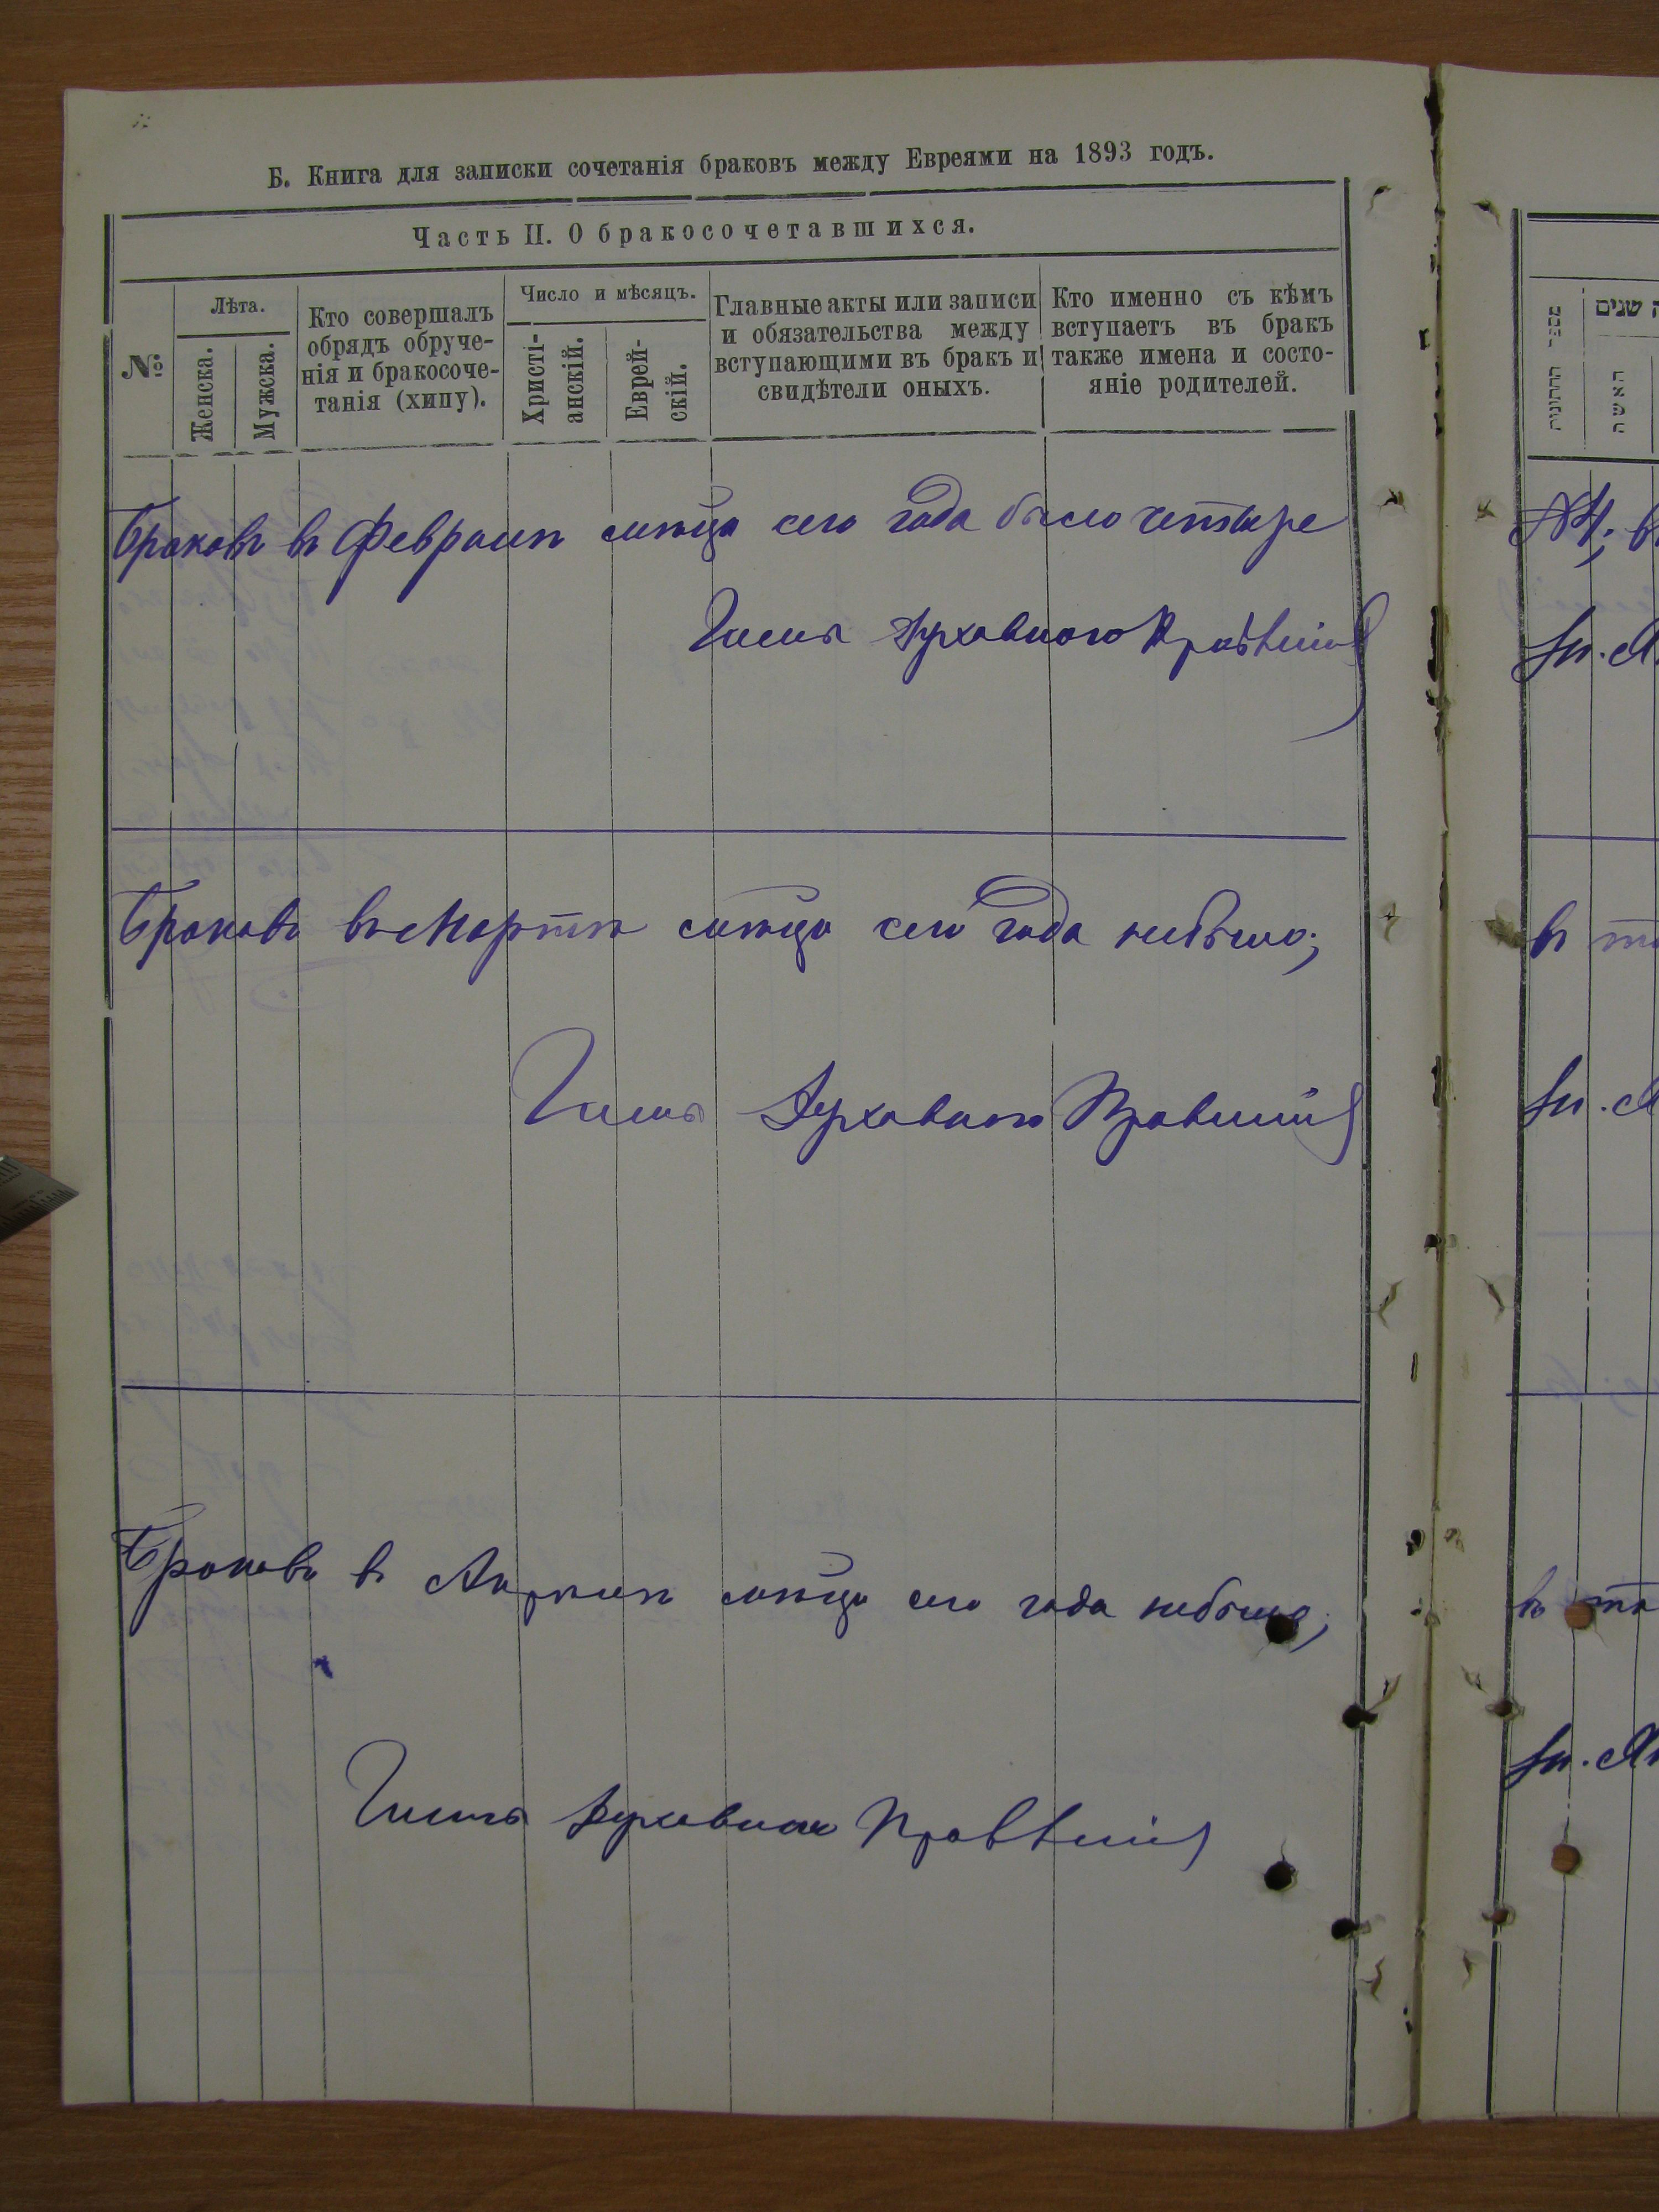 Б. Книга для записки сочетанія браковъ между Евреями на 1893 годъ.
Часть II. О бракосочетавшихся.
№
Лѣта.
Женска.
Мужска.
Кто совершалъ
обрядъ обруче-
нія и бракосоче-
танія (хипу).
Число и мѣсяцъ.
Христі-
анскій.
Еврей-
скій.
Главные акты или записи
и обязательства между
вступающими въ бракъ и
свидѣтели оныхъ.
Кто именно съ кѣмъ
вступаетъ въ бракъ
также имена и состо-
яніе родителей.
Браковъ въ Февралѣ м-цѣ сего года было четыре
Члены Духовного Правленія
Браковъ въ Мартѣ м-цѣ сего года небыло;
Члены Духовного Правленія
Браковъ въ Апрѣлѣ м-цѣ сего года небыло;
Члены Духовного Правленія
מספר החתונות
שנים
האשה